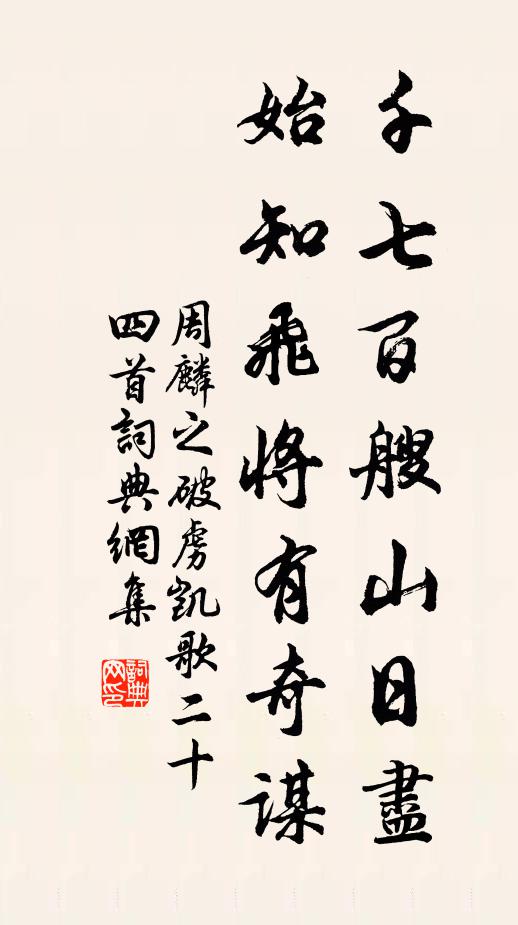 千七百艘山日盡
始知飛將有奇謀
周麟之破虜凱歌二十
四首詞典網集
詞典網印